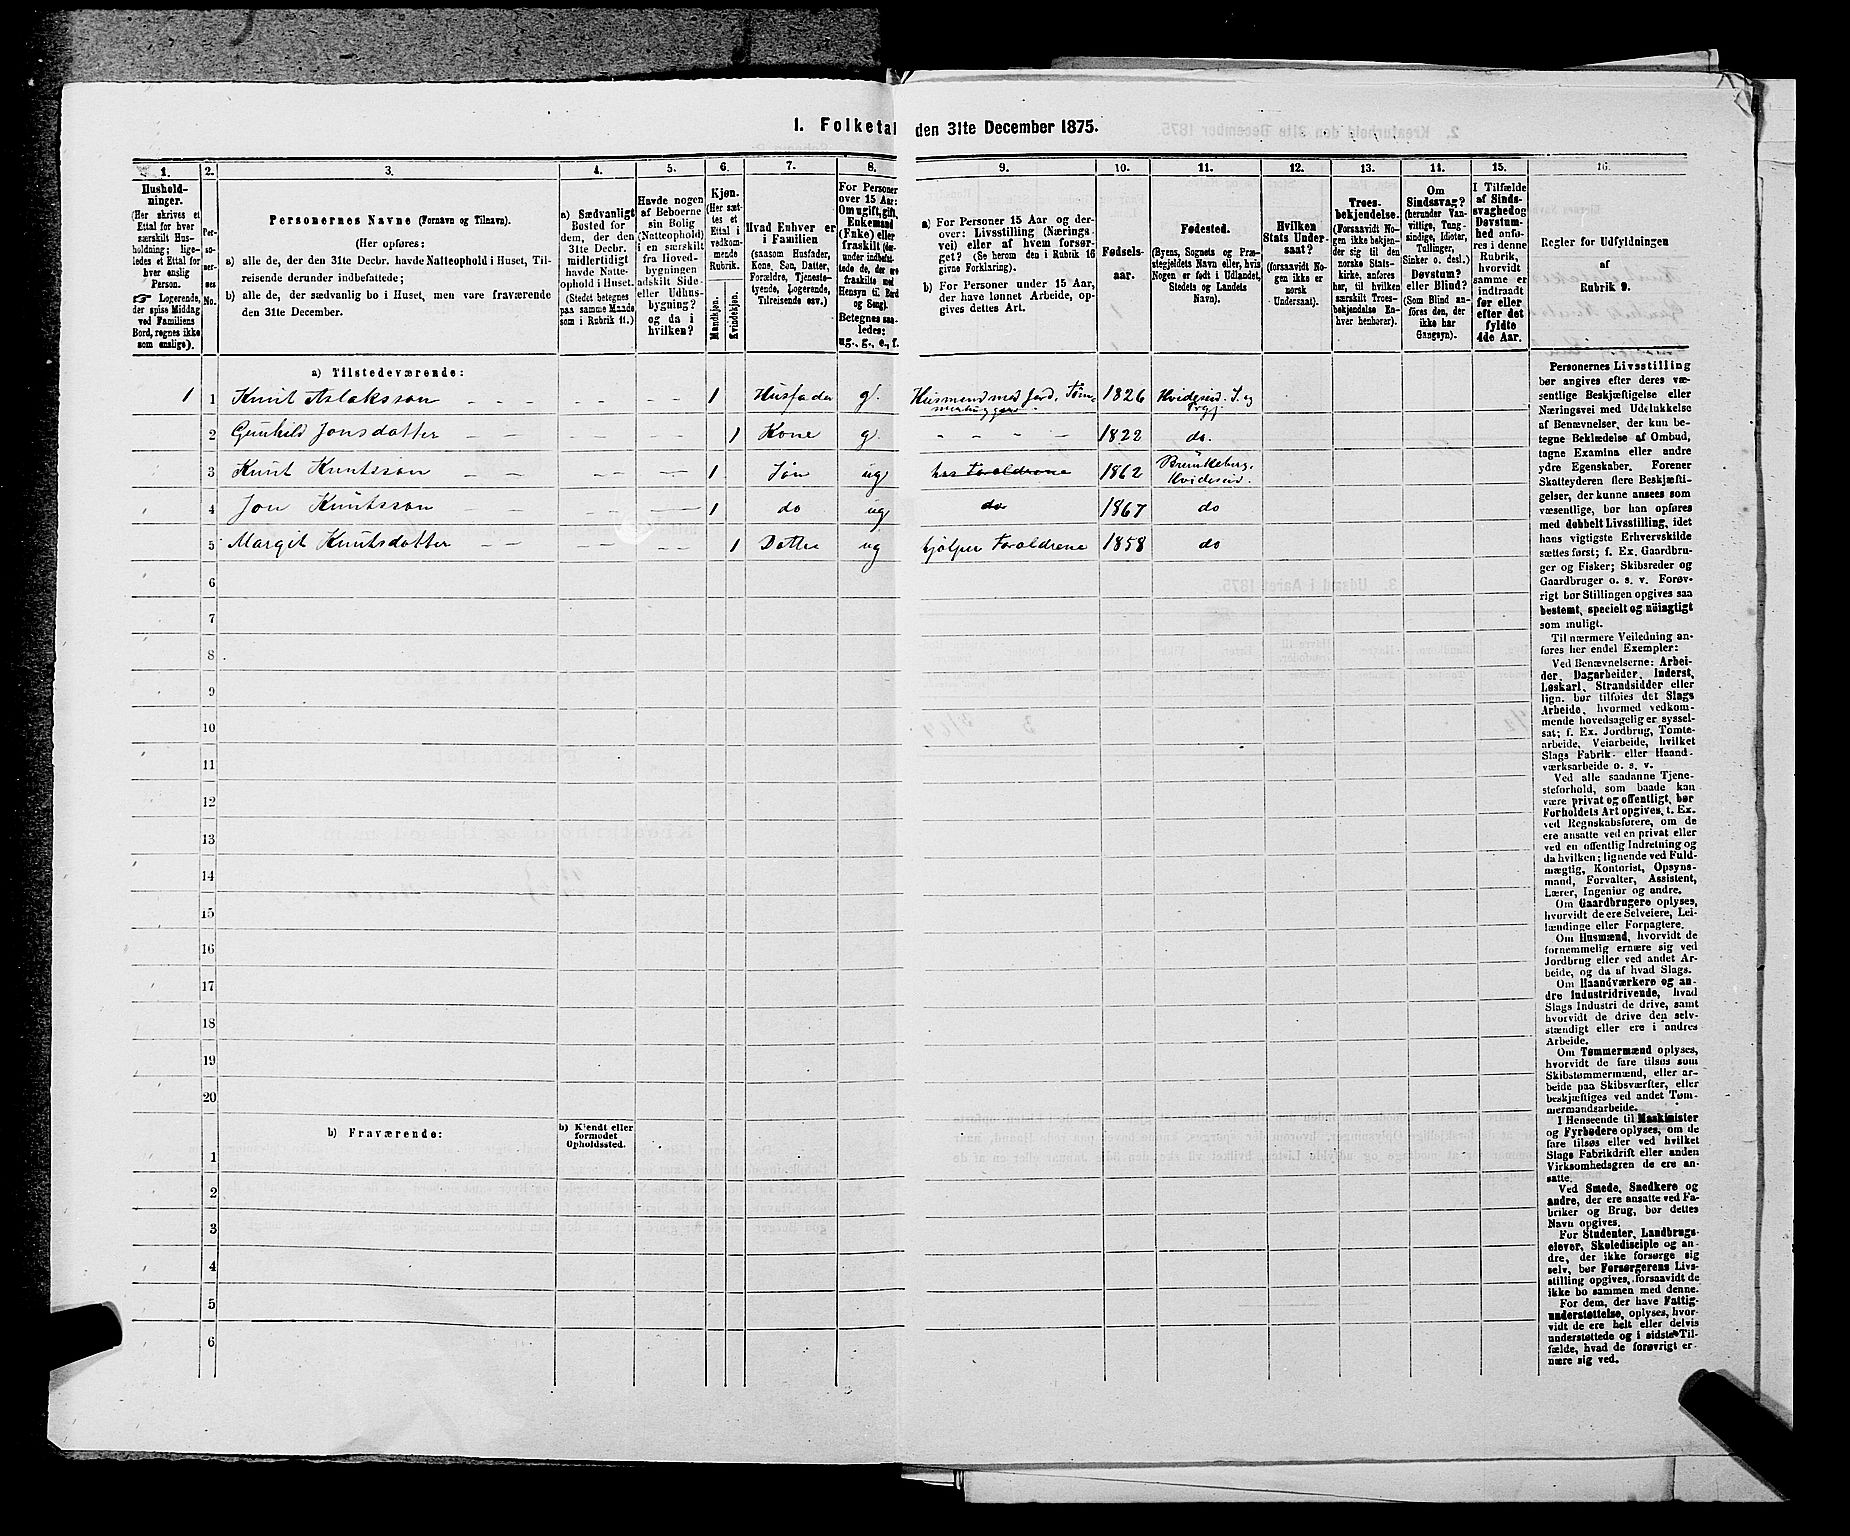 1. Folketal den 31te December 1875.
1.
2.
3.
4.
5.
6.
7.
8.
9.
10.
11.
12.
13.
14.
15.
16.
Hushold-
ninger.
(Her skrives et
Ettal for hver
særskilt Hus-
holdning; lige-
ledes et Ettal for
hver enslig
Person.
☞ Logerende,
der spise Middag
ved Familiens
Bord, regnes ikke
som enslige).
Per-
so-
ner-
nes
No.
Personernes Navne (Fornavn og Tilnavn).
(Her opføres:
a) alle de, der den 31te Decbr. havde Natteophold i Huset, Til-
reisende derunder indbefattede;
b) alle de, der sædvanlig bo i Huset, men vare fraværende
den 31te December.
a) Sædvanligt
Bosted for
dem, der den
31te Decbr.
midlertidigt
havde Natte-
ophold i Huset.
(Stedet betegnes
paa samme Maade
som i Rubrik 11.)
Havde nogen
af Beboerne
sin Bolig
(Natteophold)
i en særskilt
fra Hoved-
bygningen
adskilt Side-
eller Udhus-
bygning?
og da i
hvilken?
Kjøn.
(Her sæt-
tes et
Ettal i
vedkom-
mende
Rubrik.
Mandkjøn.
Kvindekjøn.
Hvad Enhver er
i Familien
(saasom Husfader,
Kone, Søn, Datter,
Forældre, Tjeneste-
tyende, Logerende,
Tilreisende osv.)
For Personer
over 15 Aar:
Om ugift, gift,
Enkemand
(Enke) eller
fraskilt (der-
under indbefat-
tede de, der ere
fraskilte med
Hensyn til Bord
og Seng).
Betegnes saa-
ledes:
ug., g., e., f.
a) For Personer 15 Aar og der-
over: Livsstilling (Nærings-
vei) eller af hvem forsør-
get? (Se herom den i Rubrik 16
givne Forklaring).
b) For Personer under 15 Aar,
der have lønnet Arbeide, op-
gives dettes Art.
Fødsels-
aar.
Fødested.
(Byens, Sognets og Præ-
stegjeldets Navn eller, hvis
Nogen er født i Udlandet,
Stedets og Landets
Navn).
Hvilken
Stats Under-
saat?
(forsaavidt No-
gen ikke er
norsk
Undersaat).
Troes-
bekjendelse.
(Forsaavidt No-
gen ikke bekjen-
der sig til den
norske Stats-
kirke, anføres
her, til hvilken
særskilt Troes-
bekjendelse En-
hver henhører).
Om
Sindssvag?
(herunder Van-
vittige, Tung-
sindige, Idioter,
Tullinger,
Sinker o. desl.)
Døvstum?
eller Blind?
(Som Blind an-
føres den, der
ikke har
Gangsyn).
I Tilfælde
af Sinds-
svaghed og
Døvstum-
hed anfø-
res i denne
Rubrik,
hvorvidt
samme er
indtraadt
før eller
efter det
fyldte
4de Aar.
Regler for Udfyldningen
af
Rubrik 9.
a) Tilstedeværende:
1 1 Knut Aslaksson 1 Husfader g. Husmand med Jord, Tøm- merhuggere 1826 Hvideseid. S. og Prgj.
2 Gunhild Jonsdatter 1 Kone g. 1822 do.
3 Knut Knutsson 1 Søn ug hos Foraldrene 1862 Brunkeberg, Hvideseid.
4 Jon Knutsson 1 do ug do 1867 do
5 Margit Knutsdatter 1 Datter ug hjælper Foraldrene 1858 do
6
7
8
9
10
11
12
13
14
15
16
17
18
19
20
b) Fraværende:
b) Kjendt eller
formodet
Opholdssted.
1
2
3
4
5
6
Personernes Livsstilling
bør angives efter deres væ-
sentlige Beskjæftigelse eller
Næringsvei med Udelukkelse
af Benævnelser, der kun be-
tegne Beklædelse af Ombud,
tagne Examina eller andre
ydre Egenskaber. Forener
Skatteyderen flere Beskjæfti-
gelser, der kunne ansees som
væsentlige, bør han opføres
med dobbelt Livsstilling, idet
hans vigtigste Erhvervskilde
sættes først; f. Ex. Gaardbru-
ger og Fisker; Skibsreder og
Gaardbruger o. s. v. Forøv-
rigt bør Stillingen opgives saa
bestemt, specielt og nöiagtigt
som muligt.
Til nærmere Veiledning an-
føres her endel Exempler:
Ved Benævnelserne: Arbei-
der, Dagarbeider, Inderst,
Løskarl, Strandsidder eller
lign. bør tilføies det Slags
Arbeide, hvormed vedkom-
mende hovedsagelig er syssel-
sat; f. Ex. Jordbrug, Tomte-
arbeide, Veiarbeide, hvilket
Slags Fabrik- eller Haand-
værksarbeide o. s. v.
Ved alle saadanne Tjene-
steforhold, som baade kan
være privat og offentligt, bør
Forholdets Art opgives, t. Ex.
ved Regnskabsførere, om de
ere ansatte ved en privat eller
ved en offentlig Indretning og
da hvilken; lignende ved Fuld-
mægtig, Kontorist, Opsyns-
mand, Forvalter, Assistent,
Lærer, Ingeniør og andre.
Om Gaardbrugere oplyses,
hvorvidt de ere Selveiere, Lei-
lændinge eller Forpagtere.
Om Husmænd, hvorvidt de
fornemmelig ernære sig ved
Jordbrug eller ved andet Ar-
beide, og da af hvad Slags.
Om Haandværkere og an-
dre Industridrivende, hvad
Slags Industri de drive, samt
hvorvidt de drive den selv-
stændigt eller ere i andres
Arbeide.
Om Tømmermænd oplyses,
hvorvidt de fare tilsøs som
Skibstømmermænd, eller ar-
beide paa Skibsværfter, eller
beskjæftiges ved andet Tøm-
mermandsarbeide.
I Henseende til Maskinister
og Fyrbødere oplyses, om de
fare tilsøs eller ved hvilket
Slags Fabrikdrift eller anden
Virksomhedsgren de ere an-
satte.
Ved Smede, Snedkere og
andre, der ere ansatte ved Fa-
briker og Brug, bør dettes
Navn opgives.
For Studenter, Landbrugs-
elever, Skoledisciple og an-
dre, der ikke forsørge sig
selv, bør Forsørgerens Livs-
stilling opgives, forsaavidt de
ikke bo sammen med denne.
For dem, der have Fattig-
understøttelse, oplyses, hvor-
vidt de ere helt eller delvis
understøttede og i sidste Til-
fælde, hvad de forøvrigt er-
nære sig ved.